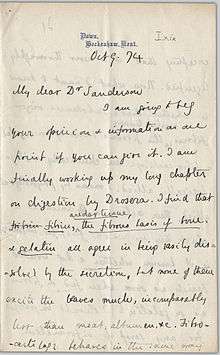 Down,
Beckenham, Kent.
Oct 9. 74
My dear Dr Sanderson
I am going to beg
your opinion & information on one
point if you can give it. I am
finally working up my long chapter
on digestion by Drosera. I find that
areolar tissue,
fibrin, the fibrous basis of bone
& gelatin all agree in being easily dis-
-solved by the secretion, but none of them
excite the leaves much, incomparably
less than meat, albumen, &c. Fibro-
-cartilage behaves in the same way